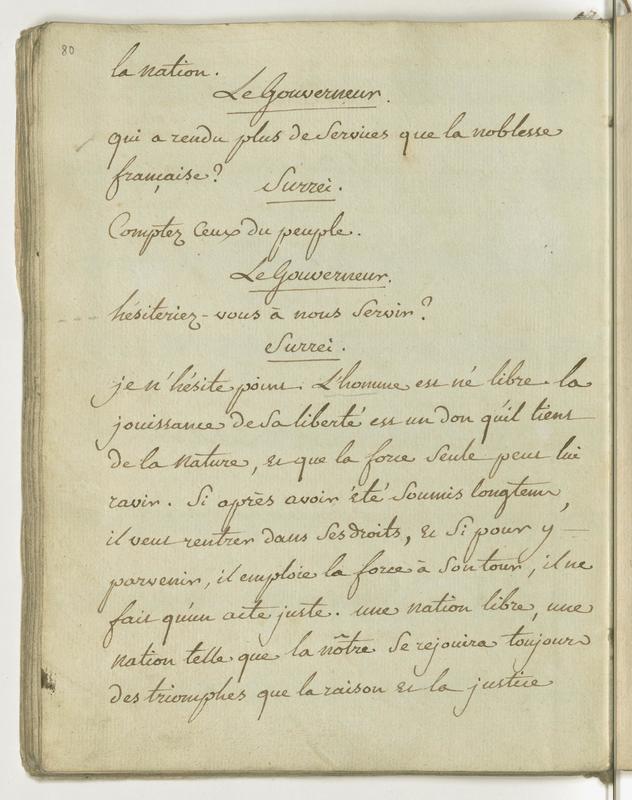 80
la nation.
Le Gouverneur.
qui a rendu plus de Services que la noblesse
française?
Surrei.
Comptez Ceux du peuple.
Le Gouverneur.
hésiteriez-vous à nous Servir?
Surrei.
je n'hésite point. L'homme est né libre. la
jouissance de Sa liberté est un don qu'il tient
de la Nature, et que la force Seule peut lui
ravir. Si après avoir été Soumis longtems,
il veut rentrer dans Ses droits, et Si pour y —
parvenir, il emploie la force à Son tour, il ne
fait qu'un acte juste. une nation libre, une
nation telle que la nôtre Se rejouira toujours
des triomphes que la raison et la justice